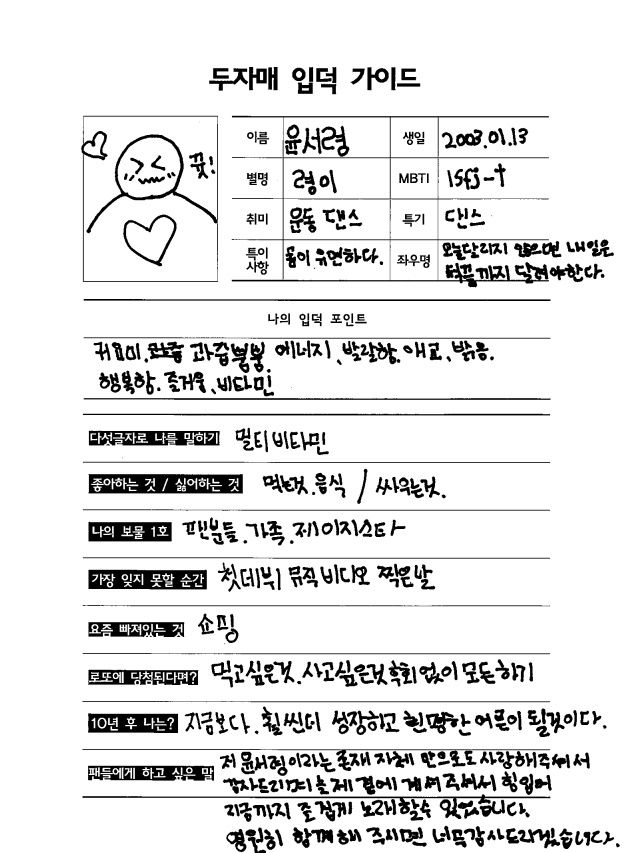 두자매 입덕 가이드
뀻!
이름 윤서령 생일 2003.01.13
별명 령이 MBTI isfj-t
취미 운동 댄스 특기 댄스
특이사항 몸이 유연하다. 좌우명 오늘달리지 않으면 내일은 뛰끔까지 달려야한다.
나의 입덕 포인트
귀요미. 과즙뿜뿜. 에너지, 발랄함. 애교, 밝음.
행복함. 즐거움, 비타민
다섯글자로 나를 말하기 멀티비타민
좋아하는 것 / 싫어하는 것 먹는것. 음식 / 싸우는것.
나의 보물 1호 팬분들. 가족. 제이지스타
가장 잊지 못할 순간 첫데뷔 뮤직비디오 찍은날
요즘 빠져있는 것 쇼핑
로또에 당첨된다면? 먹고싶은것. 사고싶은것 후회없이 모든하기
10년 후 나는? 지금보다. 훨씬더 성장하고 현명한 어른이 될것이다.
팬들에게 하고 싶은 말 저 윤서령이라는 존재 자체 만으로도 사랑해주셔서
감사드리며 늘 제 곁에 계셔주셔서 힘입어
지금까지 즐겁게 노래할수 있었습니다.
영원히 함께해 주시면 너무감사드리겠습니다.